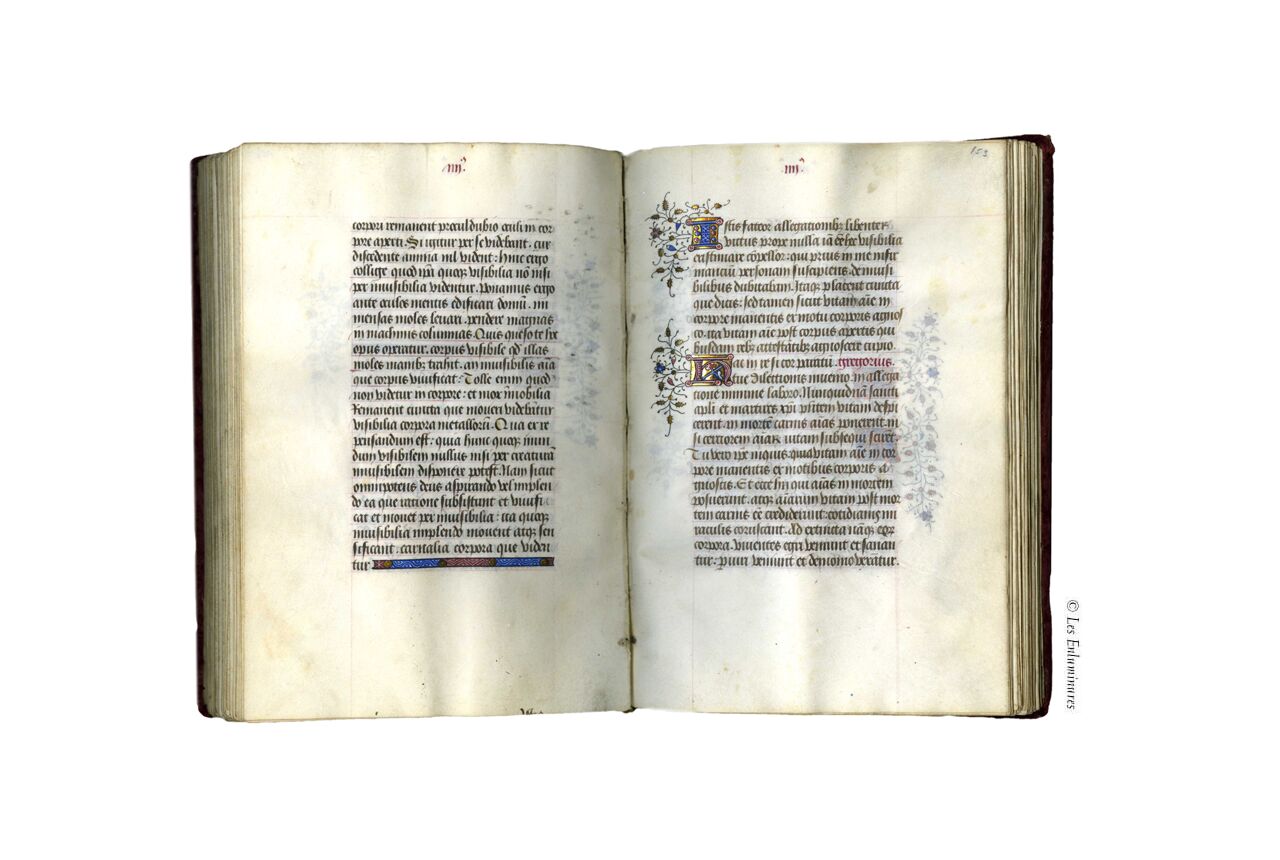 iiii.
corpori remanent procul dubio oculi in cor
pore aperti. Si igitur per se videbant. cur
discedente anima nil vident: hinc ergo
collige quod ipsa quoque visibilia non nisi
per invisibilia videntur. Ponamus ergo
ante oculos mentis edificari domum. im
mensas moles levari. pendere magnas
in machinis columnas. Quis queso te hoc
opus operatur. corpus visibile quod illas
moles manibus trahit. an invisibilis anima
que corpus vivificat: Tolle enim quod
non videtur in corpore: et mox immobilia
remanent cuncta que moveri videbantur
visibilia corpora metallorum. Qua ex re
pensandum est: quia hunc quoque mun
dum visibilem nullus nisi per creaturam
invisibilem disponere potest. Nam sicut
omnipotens deus aspirando vel implen
do ea que ratione subsistunt et vivifi
cat et movet per invisibilia: ita quoque
invisibilia implendo movent atque sen
sificant. carnalia corpora que viden
tur
iiii.
153
Istis fateor allegationibus libenter
victus prope nulla iam esse hec visibilia
estimare compellor: qui prius in me infir
mancium personam suscipiens. de invisi
bilibus dubitabam. Itaque placent cuncta
que dicis: sed tamen sicut vitam anime in
corpore manentis ex motu corporis agnosco
ita vitam anime post corpus apertis qui
busdam rebus attestantibus agnoscere cupio.
in re si cor paratum. Gregorius.
tue dilectionis invenio. in allega
tione minime laboro. Nunquidnam sancti
apostoli et martires christi presentem vitam despi
cerent. in morte carnis animas ponerent. ni
si certiorem animarum vitam subsequi scirent.
Tu vero ipse inquis quia vitam anime in cor
pore manentis ex motibus corporis a
gnoscis. Et ecce hii qui animas in mortem
posuerunt. atque animarum vitam post mor
tem carnis esse crediderunt: cotidianis mi
raculis coruscant. Ad extincta namque eorum
corpora. viventes egri veniunt et sanan
tur. periuri veniunt et demonio vexantur.
© Les Enluminures